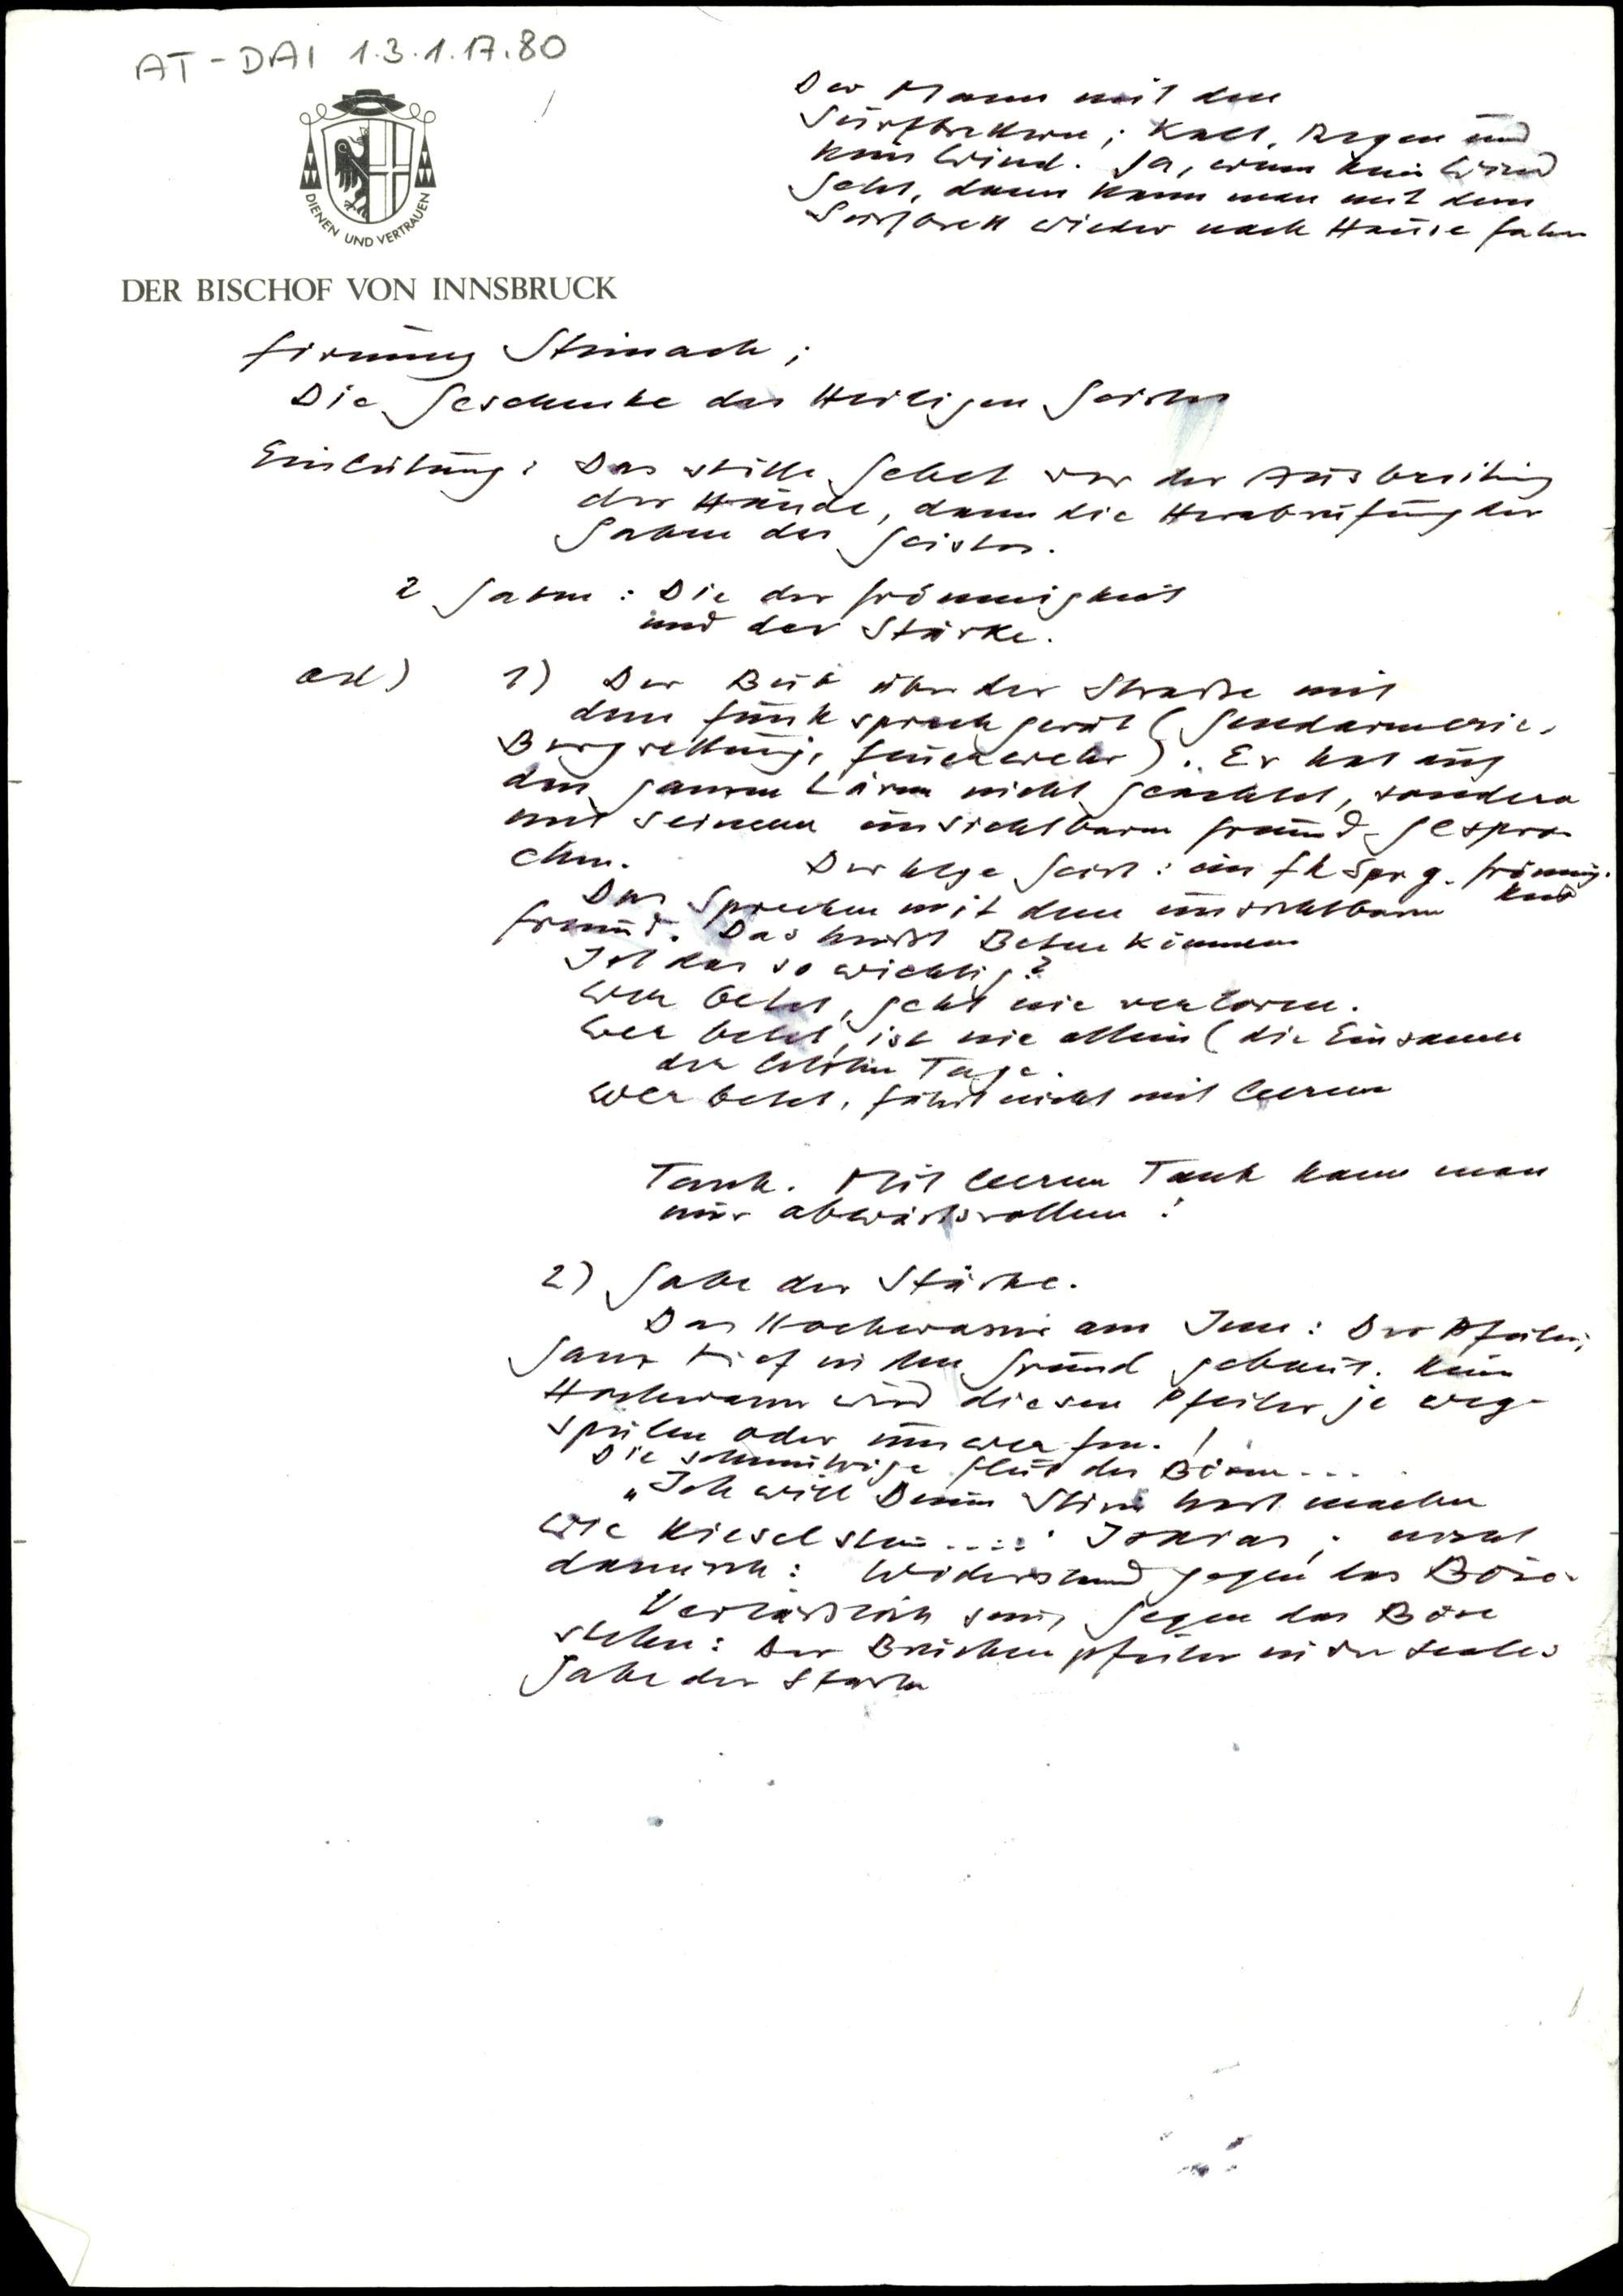 AT-DAI 1.3.1.17.80
Der Mann mit den
Surfbrettern; Kalt, Regen und
kein Wind. Ja, wenn kein Wind
geht, dann kann man mit dem
Surfbrett wieder nach Hause fahren
DIENEN UND VERTRAUEN
DER BISCHOF VON INNSBRUCK
Firmung Steinach;
Die Geschenke des Heiligen Geistes
Einleitung: Das stille Gebet vor der Ausbreitung
der Hände, dann die Herabrufung der
Gaben des Geistes.
2 Gaben: Die der Frömmigkeit
und der Stärke.
ad) 1) Der Bub über der Straße mit
dem Funksprechgerät (Gendarmerie,
Bergrettung, Feuerwehr). Er hat auf
den ganzen Lärm nicht geachtet, sondern
mit seinem unsichtbaren Freund gespro-
chen. Der hlge Geist: ein FkSprg. Frömmig-
keit
Das Sprechen mit dem unsichtbaren
Freund. Das heißt Beten können
Ist das so wichtig?
Wer betet, geht nie verloren.
Wer betet, ist nie allein (die Einsamen
der letzten Tage.
Wer betet, fährt nicht mit leerem
Tank. Mit leerem Tank kann man
nur abwärtsrollen!
2) Gabe der Stärke.
Das Hochwasser am Inn: Der Pfeiler,
ganz tief in den Grund gebaut. Kein
Hochwasser wird diesen Pfeiler je weg-
spülen oder umwerfen.!
Die schmutzige Flut des Bösen...
"Ich will Deine Stirn hart machen
wie Kieselstein....: Isaias; nicht
dämisch: Widerstand gegen das Böse.
Verläßlich sein, gegen das Böse
stehen: Der Brückenpfeiler in der Seele:
Gabe der Stärke